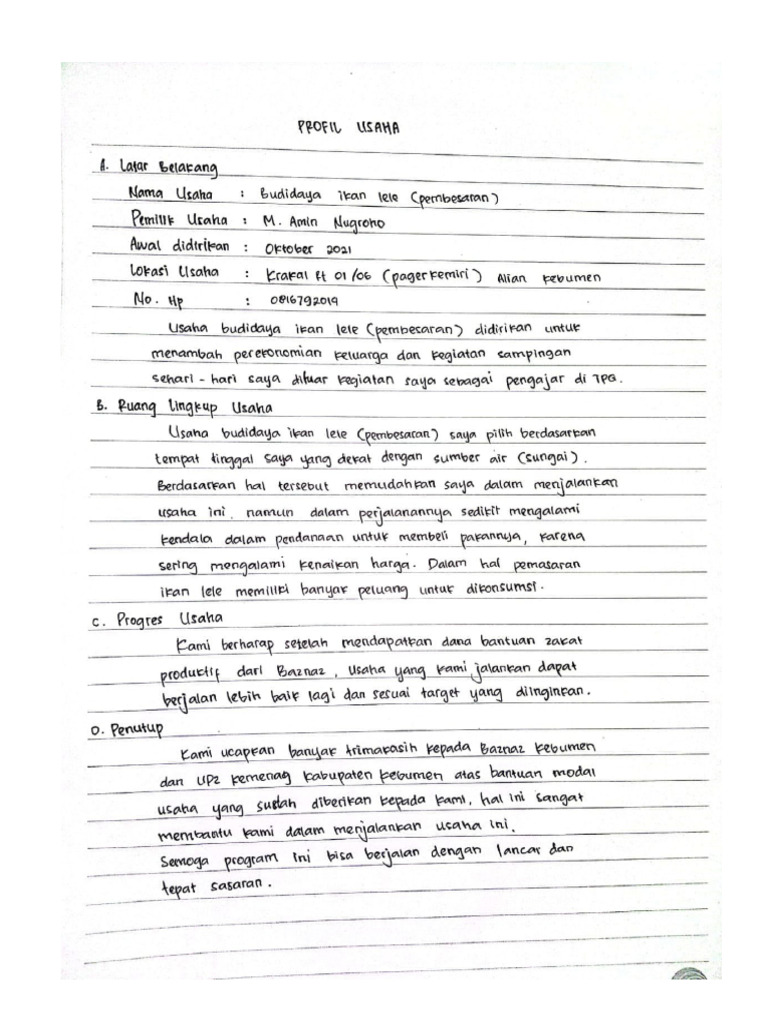 PROFIL USAHA
A. Latar Belakang
Nama Usaha : Budidaya ikan lele (pembesaran)
Pemilik Usaha : M. Amin Nugroho
Awal didirikan : Oktober 2021
Lokasi Usaha : Krakal Rt 01/06 (pagerkemiri) Alian Kebumen
No. Hp : 0816792019
Usaha budidaya ikan lele (pembesaran) didirikan untuk
menambah perekonomian keluarga dan kegiatan sampingan
sehari - hari saya diluar kegiatan saya sebagai pengajar di TPQ.
B. Ruang Lingkup Usaha
Usaha budidaya ikan lele (pembesaran) saya pilih berdasarkan
tempat tinggal saya yang dekat dengan sumber air (sungai).
Berdasarkan hal tersebut memudahkan saya dalam menjalankan
usaha ini, namun dalam perjalanannya sedikit mengalami
kendala dalam pendanaan untuk membeli pakannya, karena
sering mengalami kenaikan harga. Dalam hal pemasaran
ikan lele memiliki banyak peluang untuk dikonsumsi.
C. Progres Usaha
Kami berharap setelah mendapatkan dana bantuan zakat
produktif dari Baznaz, usaha yang kami jalankan dapat
berjalan lebih baik lagi dan sesuai target yang diinginkan.
D. Penutup
Kami ucapkan banyak trimakasih kepada Baznaz Kebumen
dan UPZ Kemenag Kabupaten Kebumen atas bantuan modal
usaha yang sudah diberikan kepada kami, hal ini sangat
membantu kami dalam menjalankan usaha ini.
Semoga program ini bisa berjalan dengan lancar dan
tepat sasaran.